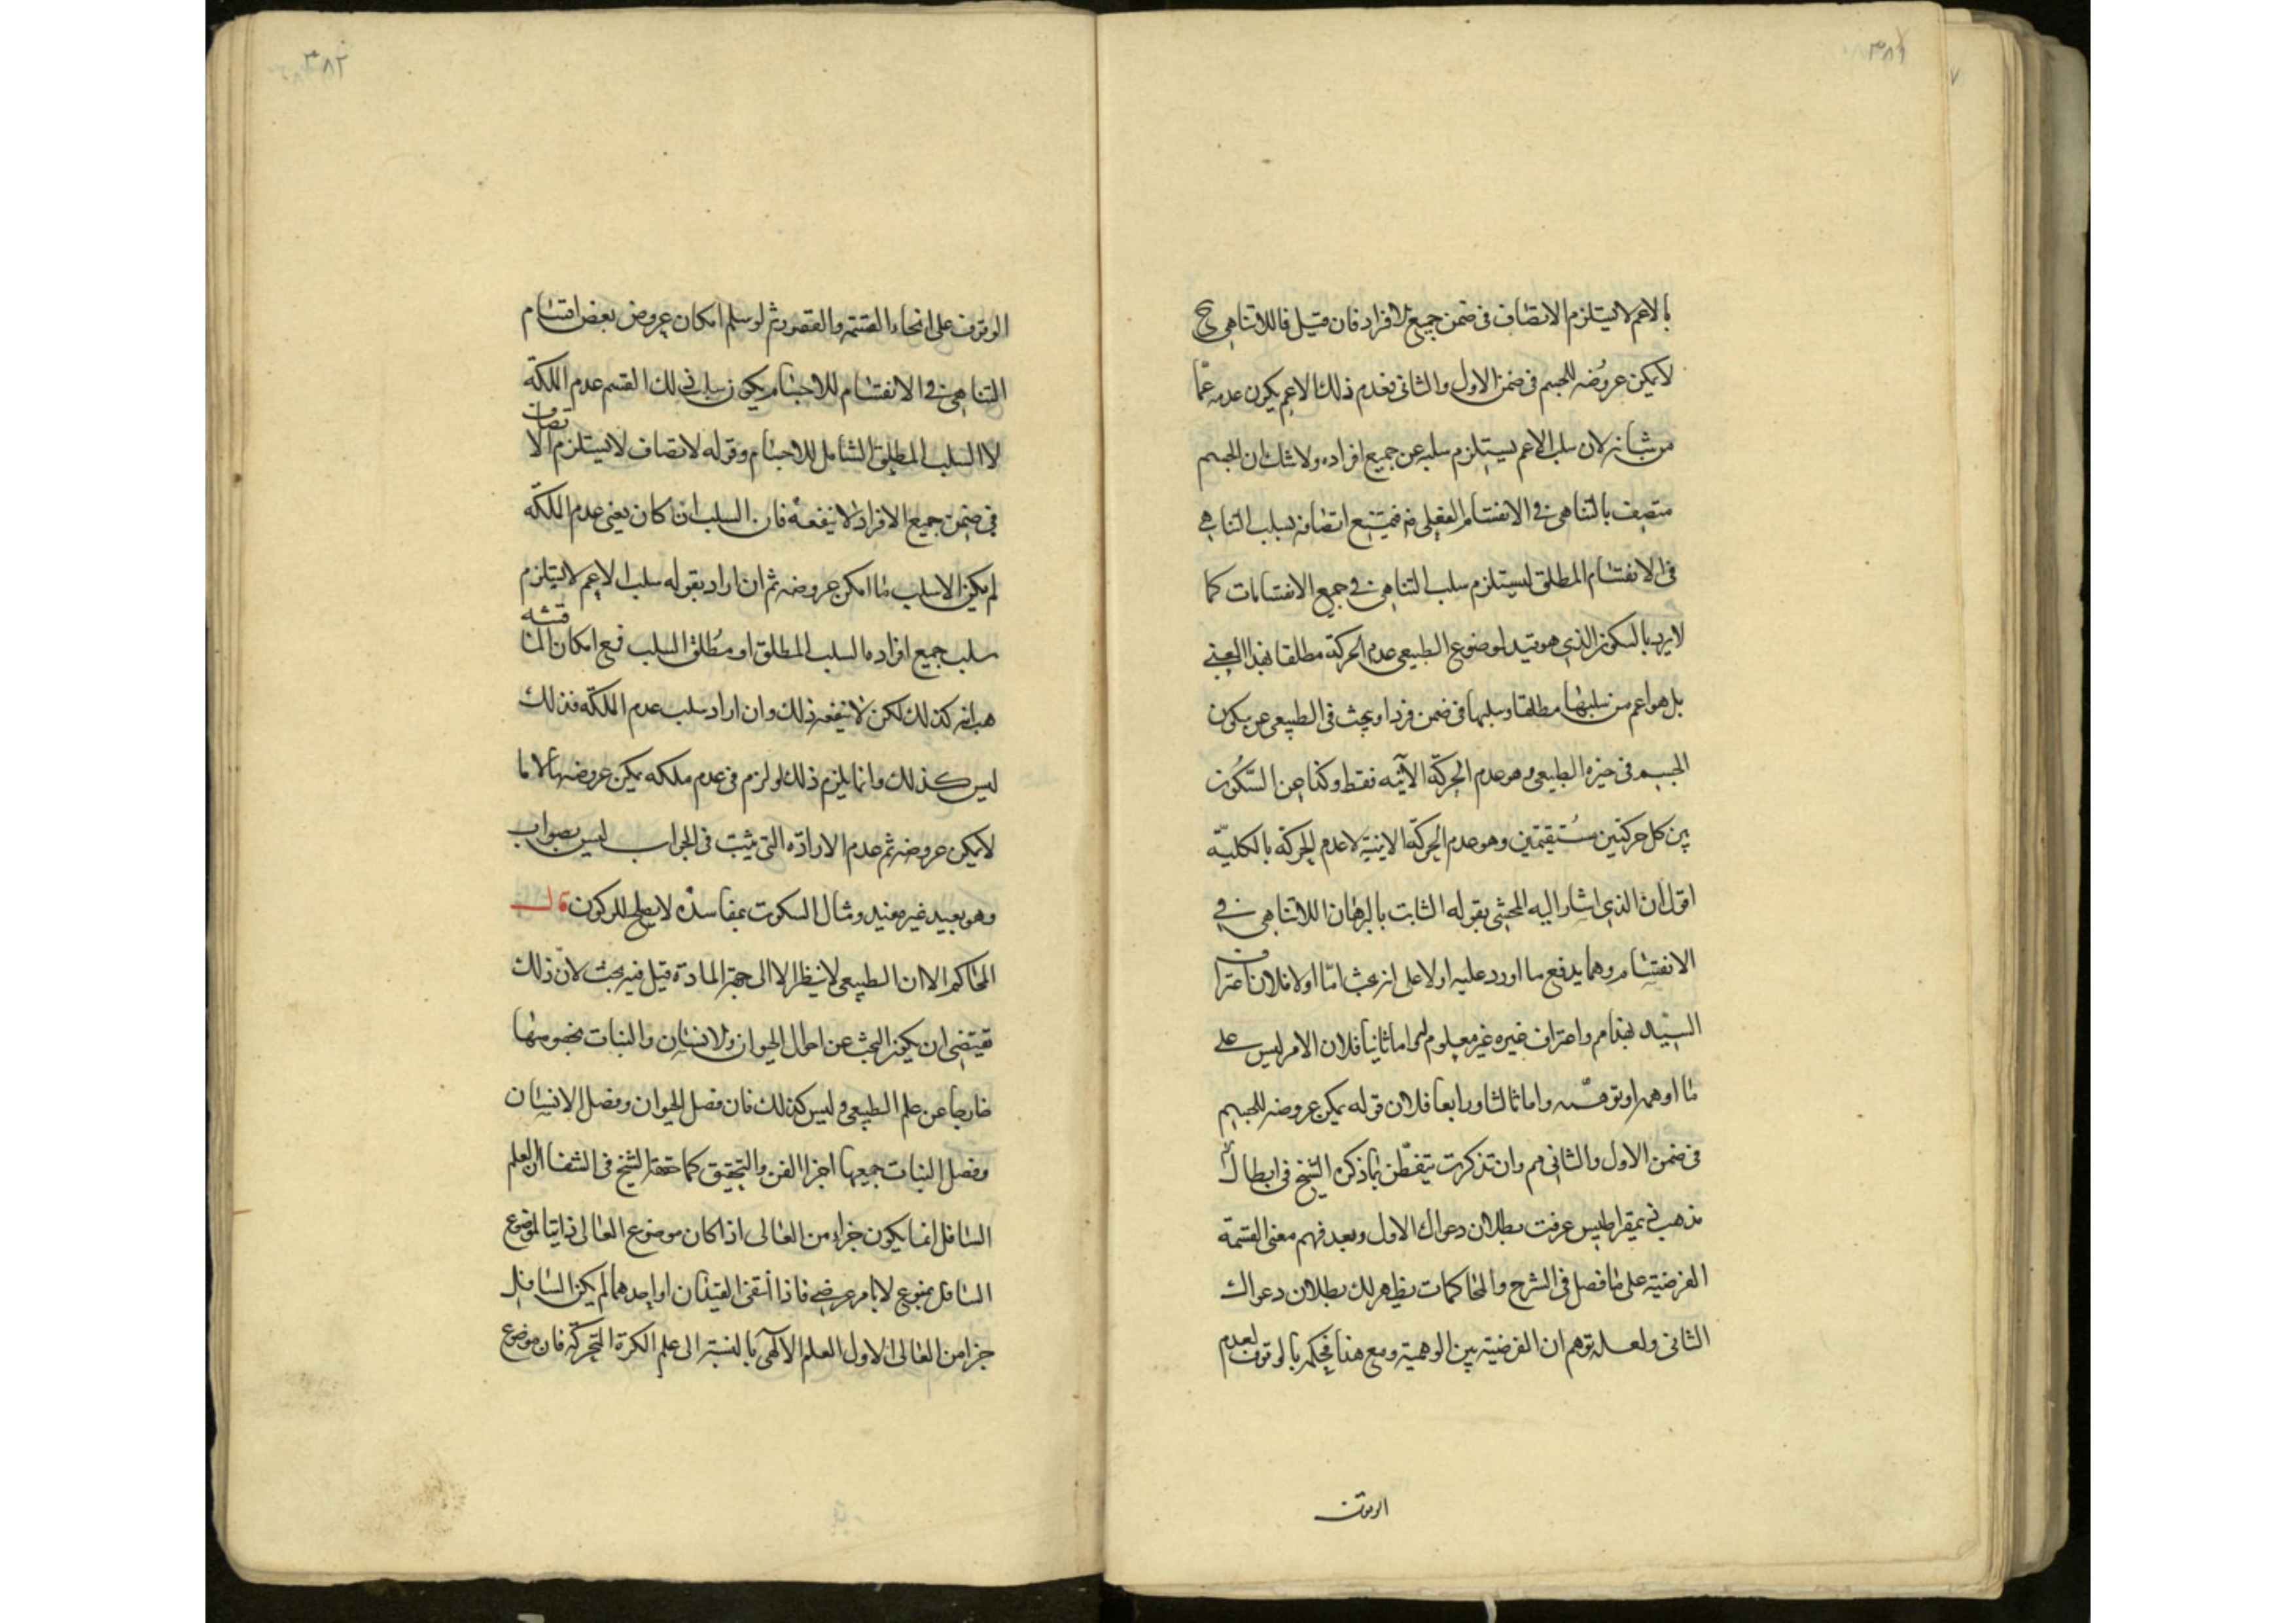 ٣٨١
بالاعم لا يستلزم الاتصاف فى ضمن جميع الافراد فان قيل فاللاتناهى ح
لا يمكن عروضه للجسم فى ضمن الاول والثانى فعدم ذلك الاعم يكون عدمه عمّا
من شانه لان سلب الاعم يستلزم سلبه عن جميع افراده ولا شك ان الجسم
متصف بالتناهى فى الانقسام الفعلى فيمتنع اتصافه بسلب التناهى
فى الانقسام المطلق ليستلزم سلب التناهى فى جميع الانقسامات كما
لا يريد بالسكون الذى هو قيد لموضوع الطبيعى عدم الحركة مطلقا بهذا المعنى
بل هو اعم من سلبها مطلقا وسلبها فى ضمن فرد او يبحث فى الطبيعى عن سكون
الجسم فى حيزه الطبيعى وهو عدم الحركة الاينيه فقط وكذا عن السّكُون
بين كل حركتين مُستقيمتين وهو عدم الحركة الاينية لا عدم الحركة بالكليّة
اقول ان الذى اشار اليه المحشى بقوله الثابت بالبرهان اللاتناهى فى
الانقسام وهما يدفع ما اورد عليه اولا على انه عبث امّا اولا فلان اعتراف
السّيد بهذا مم واعتراف غيره غير معلوم لى واما ثانيا فلان الامر ليس على
ما اوهم او توهّمه واما ثالثا ورابعا فلان قوله يمكن عروضه للجسم
فى ضمن الاول والثانى مم وان تذكرت بتفطّن ما ذكره الشيخ فى ابطال
مذهب ذيمقراطيس عرفت بطلان دعواك الاول وبعد فهم معنى القسمة
الفرضية على ما فصل فى الشرح والمحاكمات يظهر لك بطلان دعواك
الثانى ولعله توهم ان الفرضية بين الوهمية ومع هذا فيحكم بالوقوف لعدم
الوقوف
٣٨٢
الوقوف على انحاء القسمة والقصور ثم لو سلم امكان عروض بعض اقسام
التناهى فى الانقسام للاجسام يكون سلب ذلك القسم عدم الملكة
لا السلب المطلق الشامل للاجسام وقوله لاتصاف لا يستلزم الاتصاف
فى ضمن جميع الافراد لا ينفعه فان السلب ان كان يعنى عدم الملكة
لم يكن الا سلب ما امكن عروضه ثم ان اراد بقوله سلب الاعم لا يستلزم
سلب جميع افراده السلب المطلق او مُطلق السلب فمع امكان المناقشه
هب انه كذلك لكن لا ينفعه ذلك وان اراد سلب عدم الملكة فذلك
ليس كذلك وانما يلزم ذلك لو لزم فى عدم ملكه يمكن عروضها لا ما
لا يمكن عروضه ثم عدم الارادة التى يثبت فى الجواب ليس بصواب
وهو بعيد غير مفيد ومثال السكوت بمفاسده لا يصلح للركون قال
المحاكم الا ان الطبيعى لا ينظر الا الى جهة المادة قيل فيه بحث لان ذلك
يقتضى ان يكون البحث عن احوال الحيوان والانسان والنبات بخصوصها
خارجا عن علم الطبيعى وليس كذلك فان فصل الحيوان وفصل الانسان
وفصل النبات جميعها اجزا الفن والتحقيق كما حققه الشيخ فى الشفا ان العلم
السافل انما يكون جزاء من العالى اذا كان موضوع العالى ذاتيا لموضوع
السافل منوع لا بامر عرضى فاذا انتفى القيدان او احدهما لم يكن السافل
جزا من العالى الاول العلم الالهى بالنسبة الى علم الكرة المتحركة فان موضوع